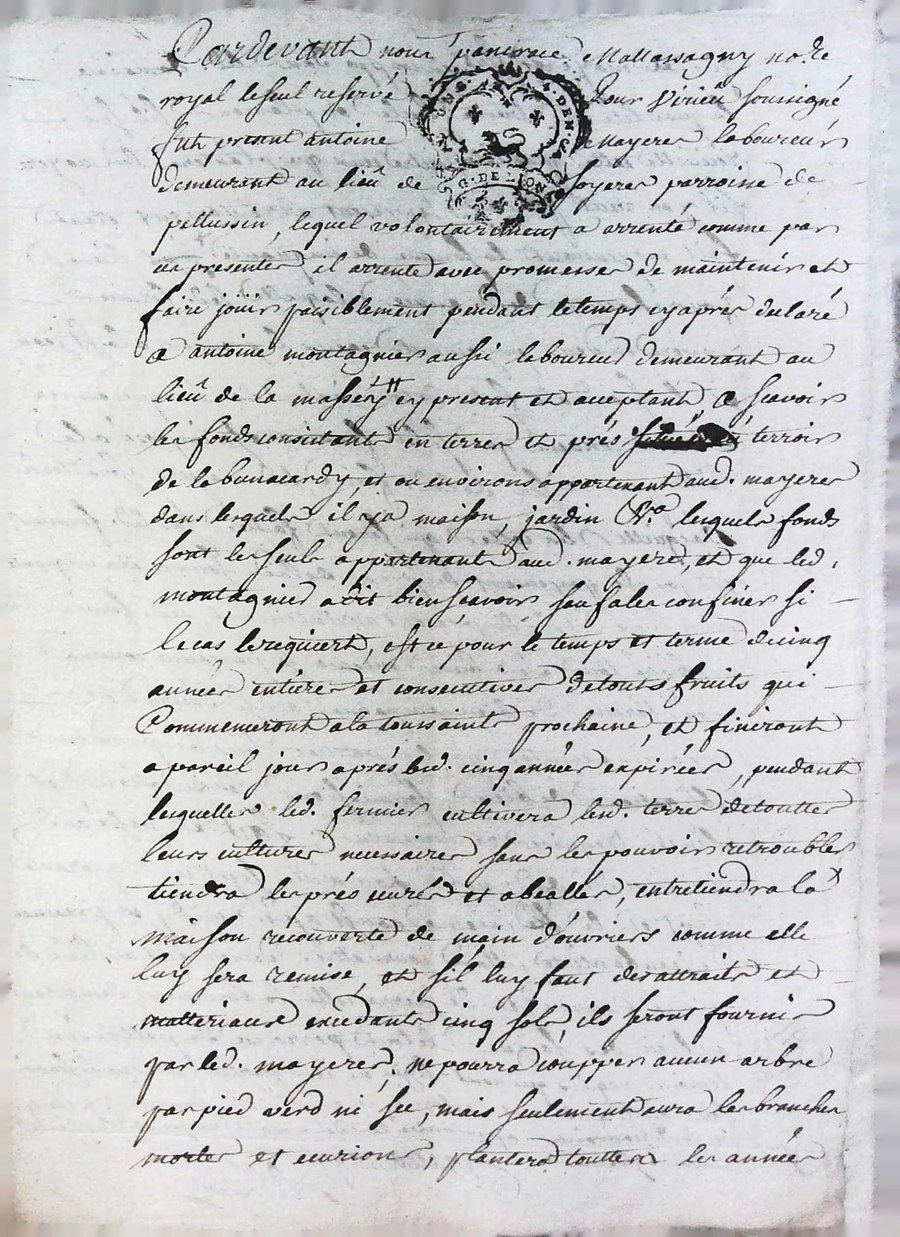 Pardevant nous pancrace Mallassagny no.re
royal le seul reservé Pour Virieu soussigné
fut present antoine Mayeres laboureur
demeurant au lieu de soyeres parroisse de
pellussin, lequel volontairement a arrenté comme par
ces presentes il arrente avec promesses de maintenir et
faire jouir paisiblement pendant le temps cy après declaré
a antoine montagnier aussi laboureur demeurant au
lieu de la massery cy present et acceptant, a scavoir
les fonds consistants en terres et prés terroir
de et ou environs appartenant aud. mayeres
dans lesquels il y a maison, jardin &.a lesquels fonds
sont les seuls appartenant aud. mayeres, et que led.
montagnier a dit bien scavoir, sauf a les confiner si
le cas le requiert, et ce pour le temps et terme de cinq
années entieres et consecutives de touts fruits qui
Commenceront a la toussaints prochaine, et finiront
a pareil jour après lesd. cinq années expirées, pendant
lesquelles led. fermier cultivera lesd. terres de touttes
leurs cultures necessaires sans les pouvoir retroubler
tiendra les prés curés et abealés, entretiendra la
maison recouverte de main d'ouvriers comme elle
luy sera remise, et s'il luy faut des attraits et
matteriaux excedants cinq sols, ils seront fournis
par led. mayeres, ne pourra coupper aucun arbre
par pied verd ni sec, mais seulement aura les branches
mortes et ecurions, plantera touttes les années
G. DE LION